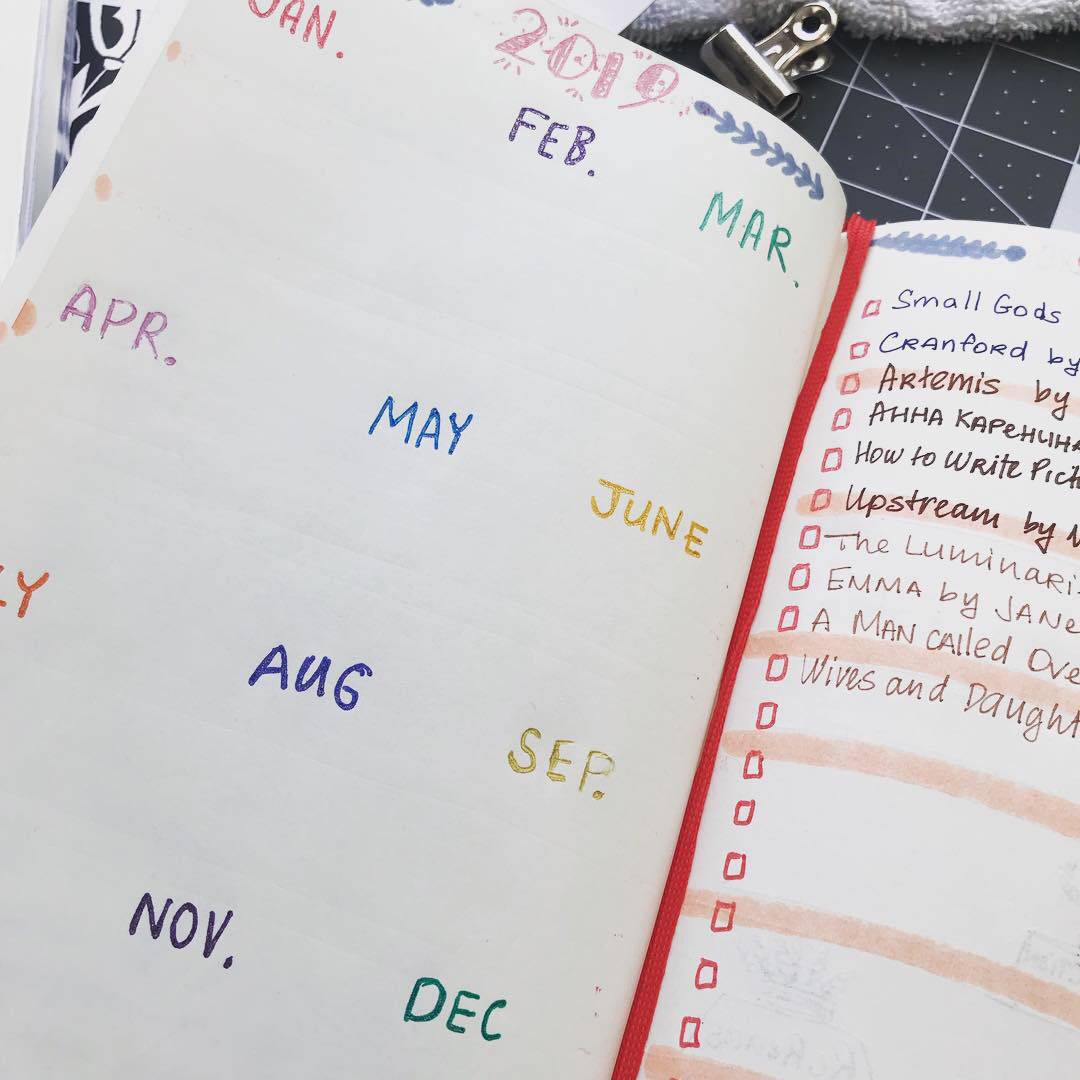 2019
JAN.
FEB.
MAR.
APR.
MAY
JUNE
LY
AUG
SEP.
NOV.
DEC
Small Gods
CRANford by
ARtemis by
АННА КАРЕНИНА
How to WRite Pict
Upstream by M
The LUMINARI
EMMA by JANE
A MAN CAlled Ove
Wives and Daught